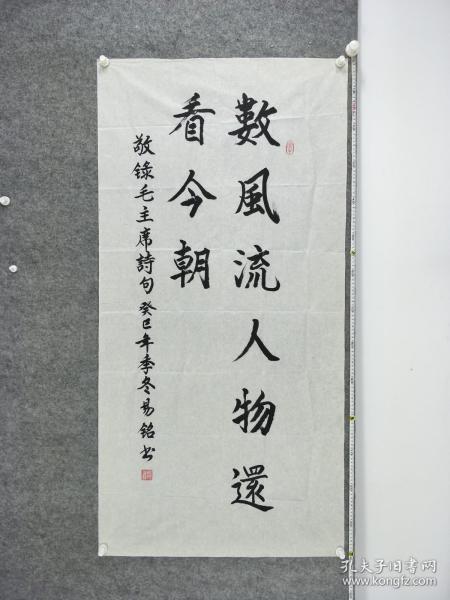 數風流人物還
看今朝
敬錄毛主席詩句 癸巳年季冬易銘書
孔夫子旧书网
www.kongfz.com